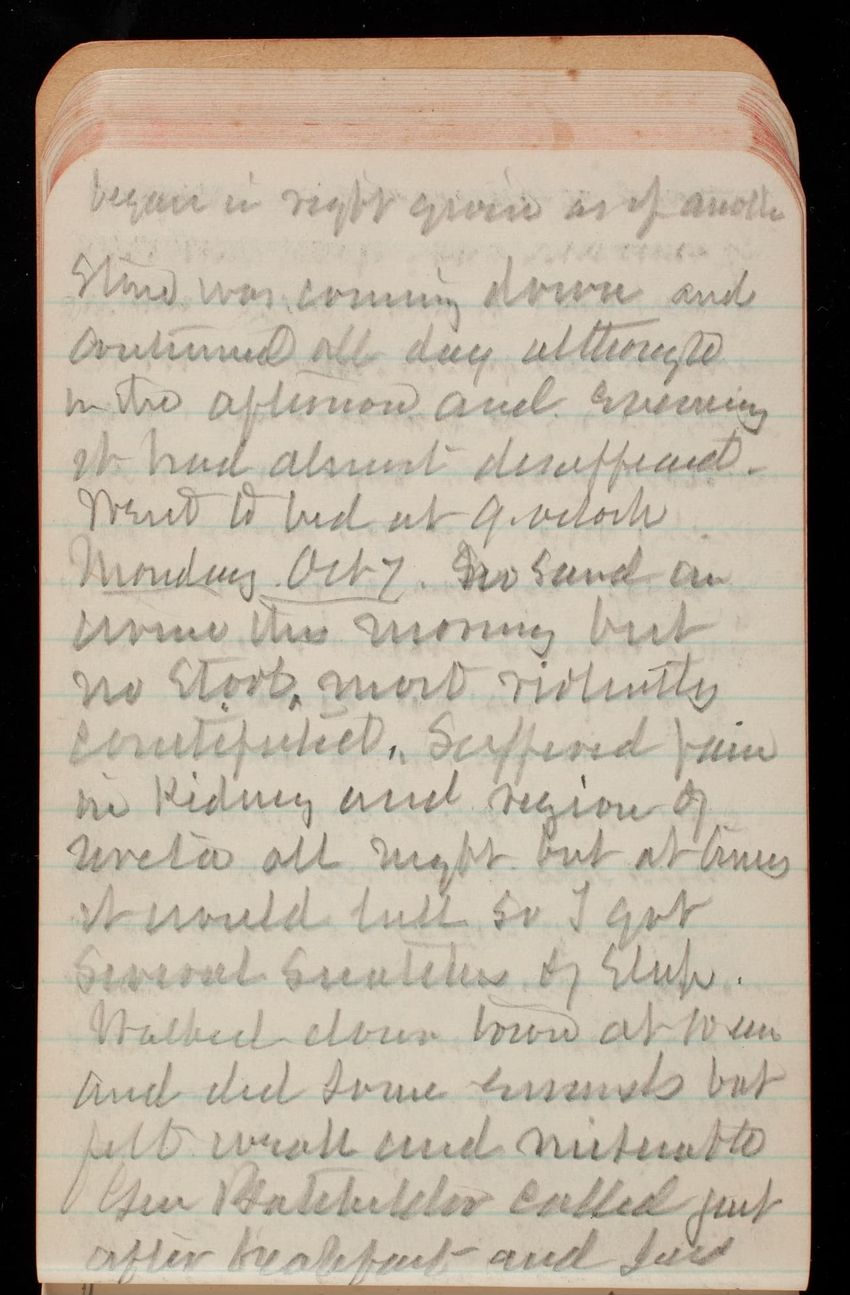 began in right groin as if another
stone was coming down and
continued all day although
in the afternoon and evening
it had almost disappeared.
Went to bed at 9. oclock
Monday Oct 7. No sand in
urine this morning but
no stool, most violently
constipated. Suffered pain
in Kidney and region of
ureter all night but at times
it would lull so I got
several snatches of sleep.
Walked down town at 10 am
and did some errands but
felt weak and miserable
Gen Batchelder called just
after breakfast and